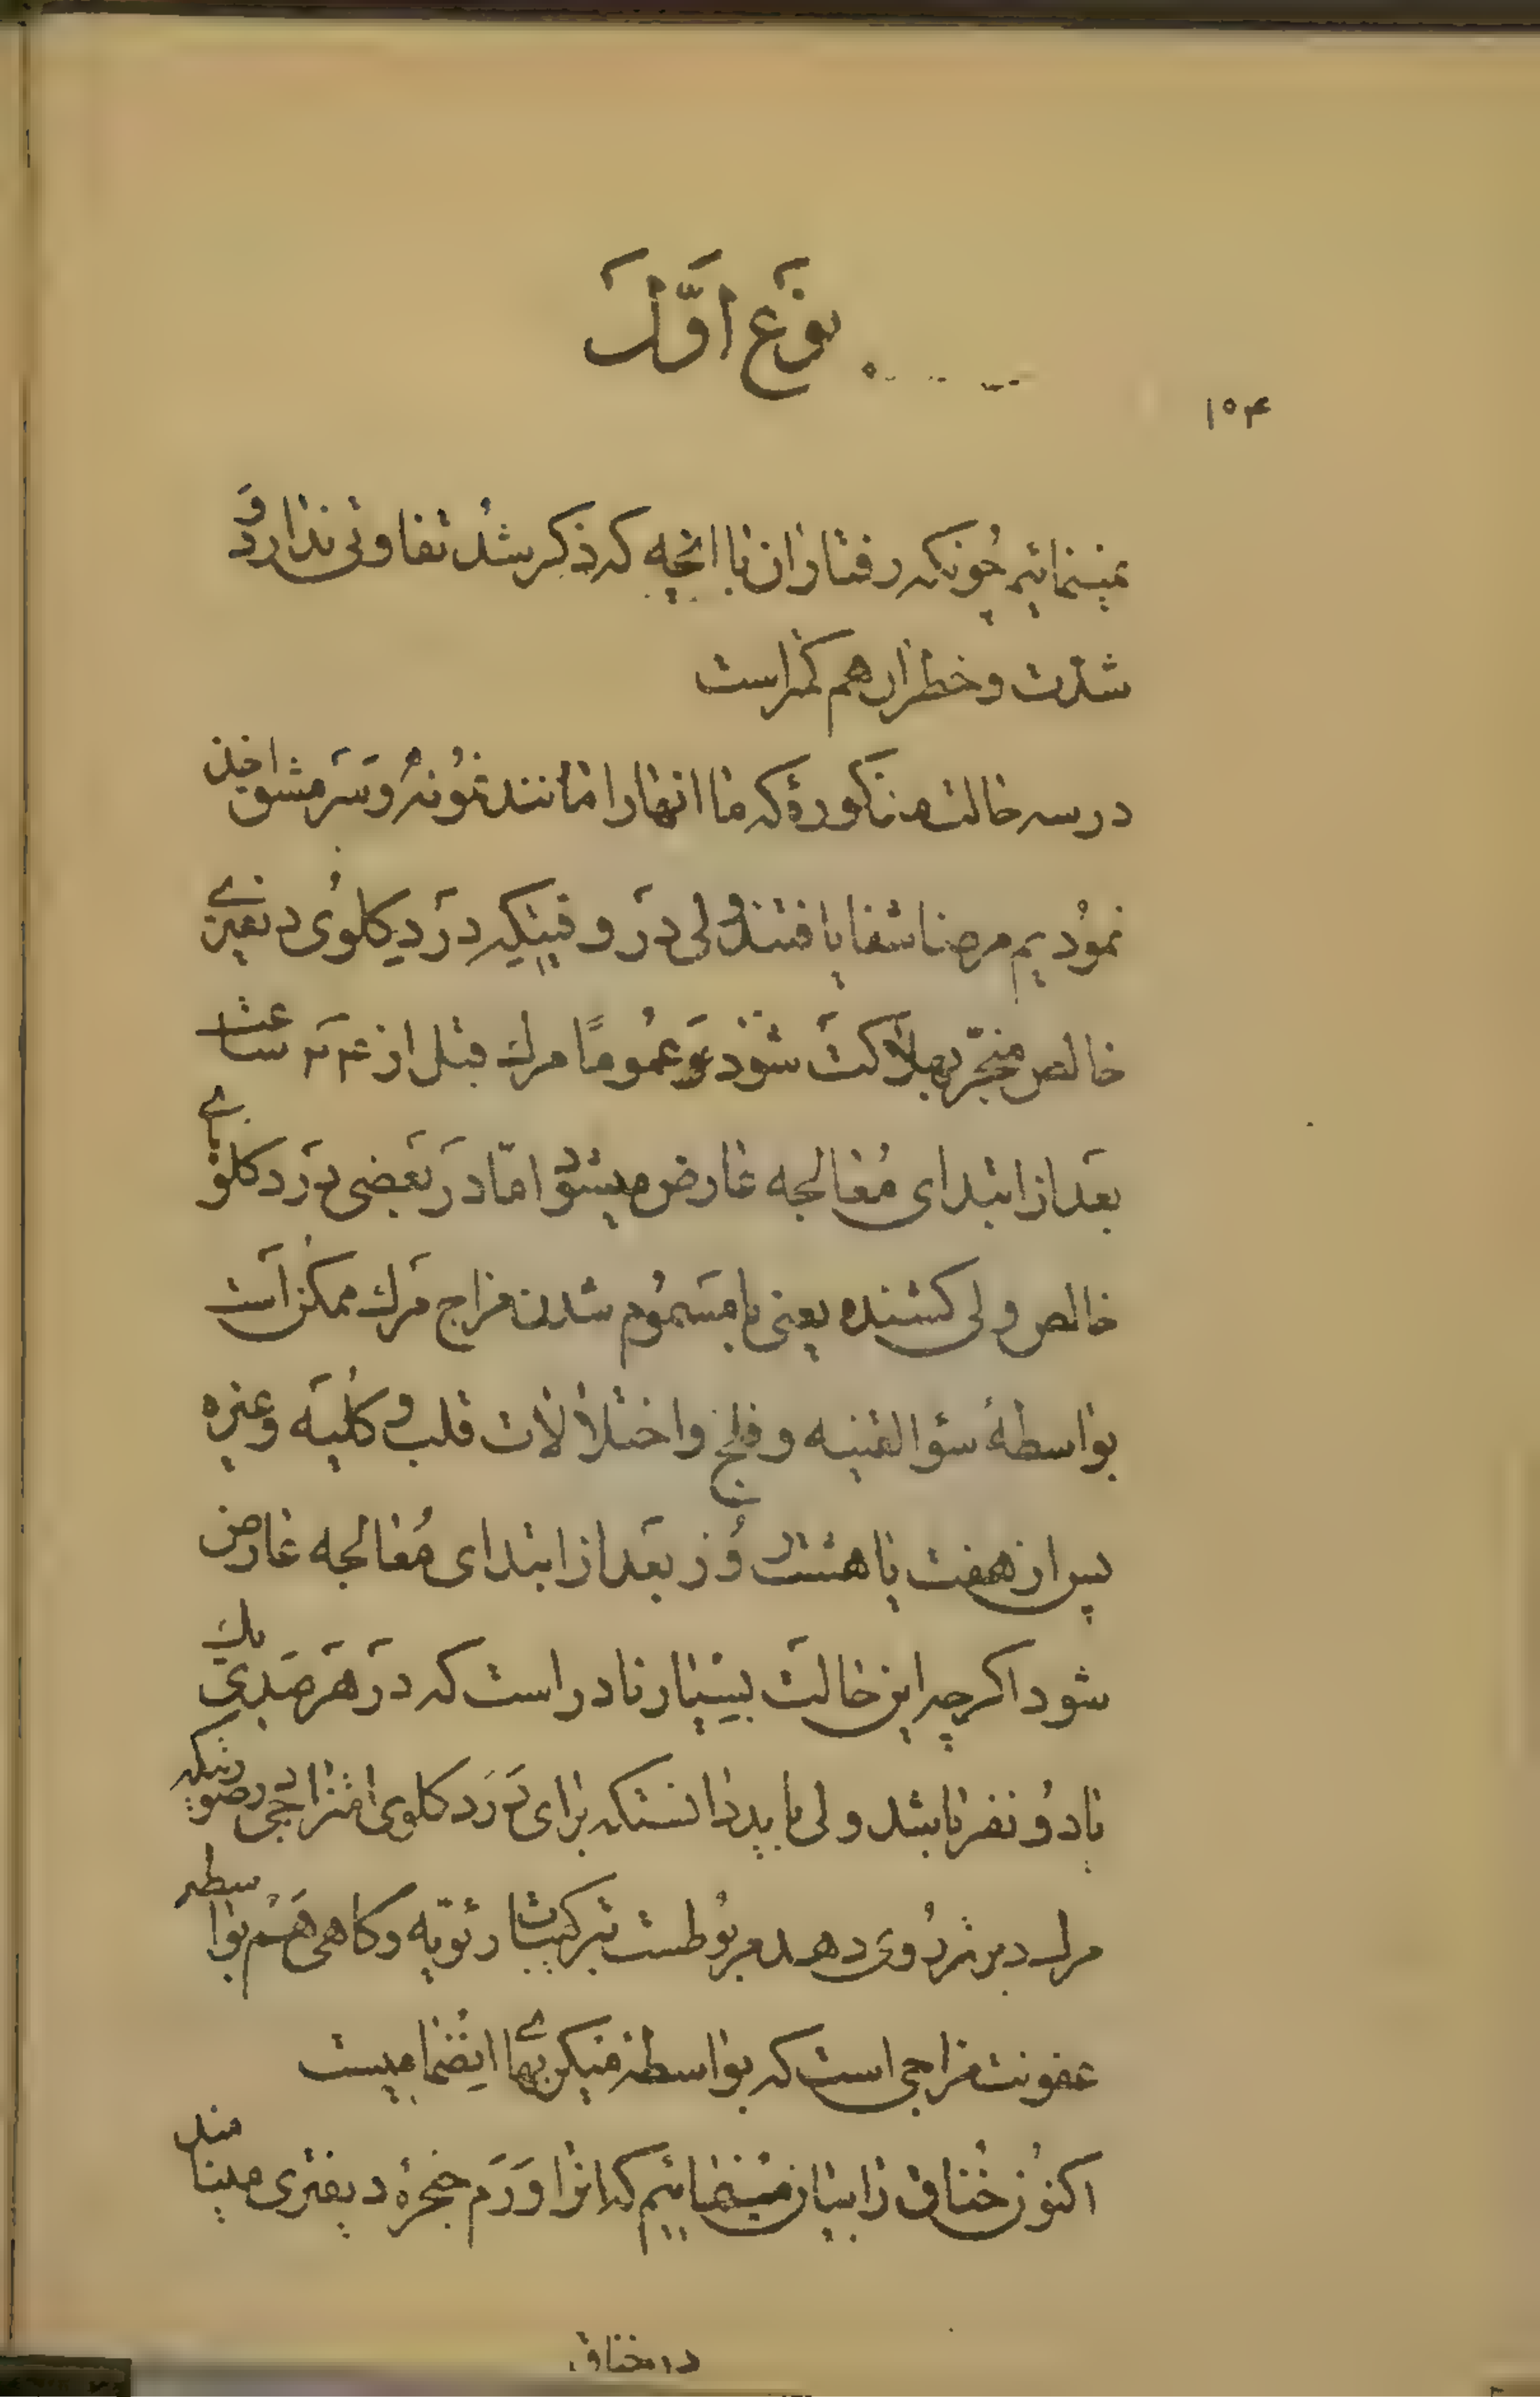 نوع اوّل
۱۵۴
نمینمائیم چونکه رفتار ان با انچه که ذکر شد تفاوتی ندارد و
شدت و خطر ان هم کمتر است
در سه حالت مذکورهٔ که ما انها را مانند نمونه و سرمشق اخذ
نمودیم مرضا شفا یافتند ولی در وقتیکه درد گلوی دیفتری
خالص منجرّ بهلاکت شود عمومًا مرگ قبل از ۲۴ ساعت
بعد از ابتدای معالجه عارض میشود امّا در بعضی درد گلوهای
خالص ولی کشنده یعنی با مسموم شدن مزاج مرگ ممکن است
بواسطهٔ سؤ القنیه و فلج و اختلالات قلب و کلیه و غیره
پس از هفت یا هشت روز بعد از ابتدای معالجه عارض
شود اگرچه این حالت بسیار نادر است که در هر صدی یک
یا دو نفر باشد ولی باید دانست که برای درد گلوی امتزاجی در صورتیکه
مرگ دیرتر روی دهد مربوطست بترکیبات رئویّه و گاهی هم بواسطه
عفونت مزاجی است که بواسطه میکربهای انضمامیست
اکنون خناق را بیان مینمائیم که انرا ورم حنجرهٔ دیفتری مینامند
در خناق